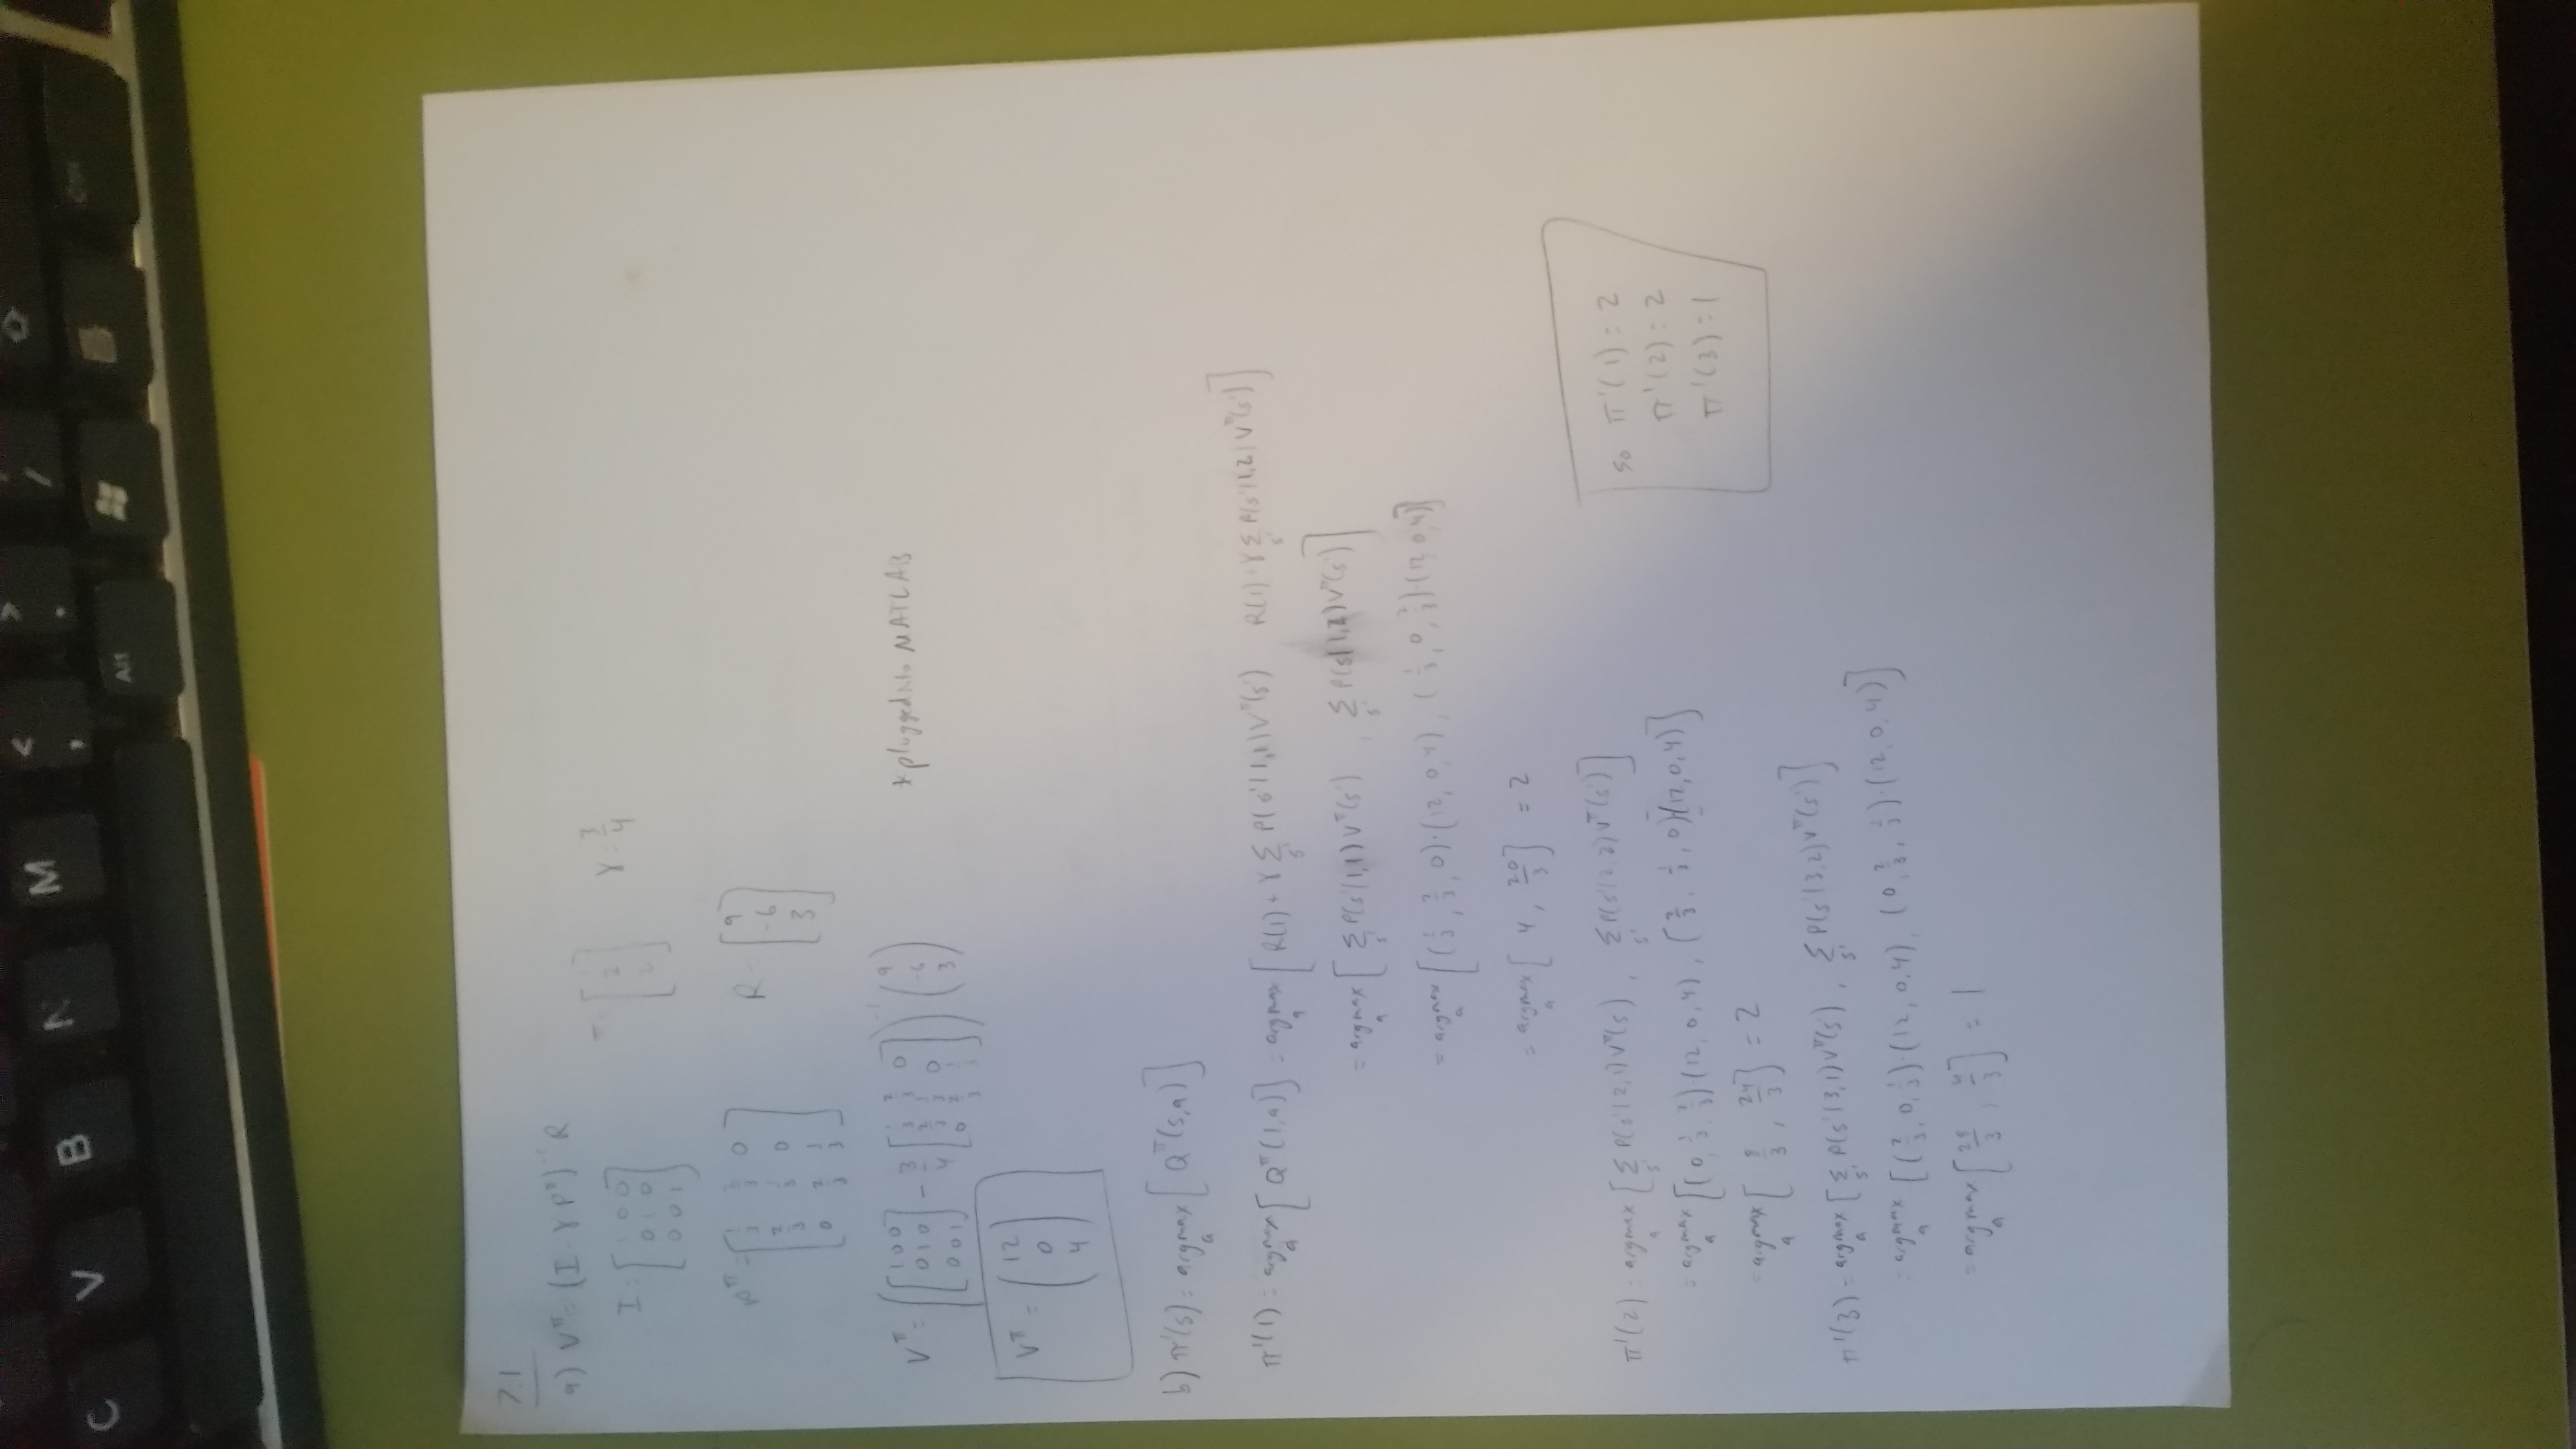 C V B N M < , > . /
Alt Ctrl
7.1
a) V^π = (I - γ P^π)^-1 R
I = [1 0 0; 0 1 0; 0 0 1] π = [1; 2; 2] γ = 3/4
P^π = [1/3 2/3 0; 2/3 1/3 0; 0 2/3 1/3] R = [9; -6; 3]
V^π = ([1 0 0; 0 1 0; 0 0 1] - 3/4 [1/3 2/3 0; 2/3 1/3 0; 0 2/3 1/3])^-1 (9; -6; 3) *plugged into MATLAB
V^π = (12; 0; 4)
b) π'(s) = argmax_a [Q^π(s,a)]
π'(1) = argmax_a [Q^π(1,a)] = argmax_a [R(1) + γ Σ_s' P(s'|1,1) V^π(s') R(1) + γ Σ_s' P(s'|1,2) V^π(s')]
= argmax_a [Σ_s' P(s'|1,1) V^π(s') , Σ_s' P(s'|1,2) V^π(s')]
= argmax_a [(1/3, 2/3, 0)·(12, 0, 4), (1/3, 0, 2/3)·(12, 0, 4)]
= argmax_a [4, 20/3] = 2
π'(2) = argmax_a [Σ_s' P(s'|2,1) V^π(s'), Σ_s' P(s'|2,2) V^π(s')]
= argmax_a [(0, 1/3, 2/3)·(12, 0, 4), (2/3, 1/3, 0)·(12, 0, 4)]
= argmax_a [8/3, 24/3] = 2
π'(3) = argmax_a [Σ_s' P(s'|3,1) V^π(s'), Σ_s' P(s'|3,2) V^π(s')]
= argmax_a [(2/3, 0, 1/3)·(12, 0, 4), (0, 2/3, 1/3)·(12, 0, 4)]
= argmax_a [28/3, 4/3] = 1
so π'(1) = 2
π'(2) = 2
π'(3) = 1